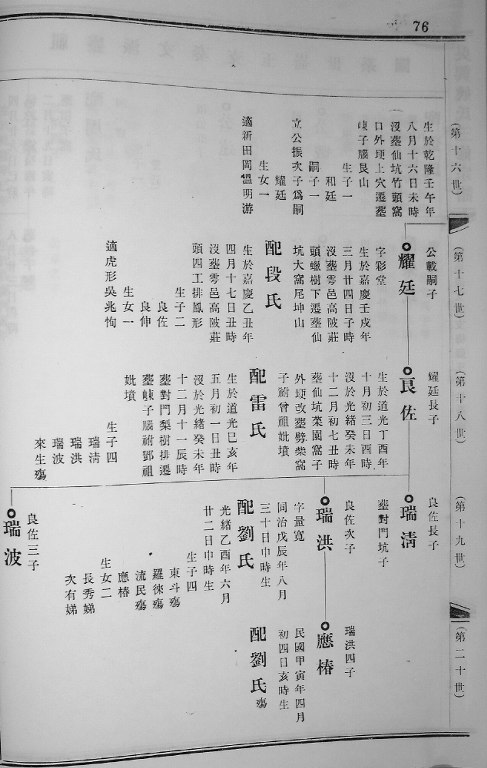 76
(第十六世)
生於乾隆壬午年
八月十六日未時
沒塟仙坑竹頭窩
口外埂上穴遷塟
崠子腦艮山
生子一
和廷
嗣子一
耀廷
立公振次子爲嗣
生女一
適新田岡溫明游
(第十七世)
公載嗣子
耀廷
字彩堂
生於嘉慶壬戌年
三月廿四日子時
沒塟零邑高陂莊
頭蠟樹下遷塟仙
坑大窩尾坤山
配段氏
生於嘉慶乙丑年
四月十七日丑時
沒塟零邑高陂莊
頭四工排鳳形
生子二
良佐
良伸
生女一
適虎形吳兆恂
(第十八世)
耀廷長子
良佐
生於道光丁酉年
十月初三日酉時
沒於光緒癸未年
十二月初七丑時
塟仙坑菜園窩子
外埂改塟劈柴窩
子祔曾祖妣墳
配雷氏
生於道光己亥年
五月初一日丑時
沒於光緒癸未年
十二月十一辰時
塟對門梨樹排遷
塟崠子腦祔鄧祖
妣墳
生子四
瑞淸
瑞洪
瑞波
來生殤
(第十九世)
良佐長子
瑞淸
塟對門坑子
良佐次子
瑞洪
字量寬
同治戊辰年八月
三十日中時生
配劉氏
光緒乙酉年六月
廿二日中時生
生子四
東斗殤
羅徠殤
流民殤
應椿
生女二
長秀娣
次有娣
良佐三子
瑞波
(第二十世)
瑞洪四子
應椿
民國甲寅年四月
初四日亥時生
配劉氏殤